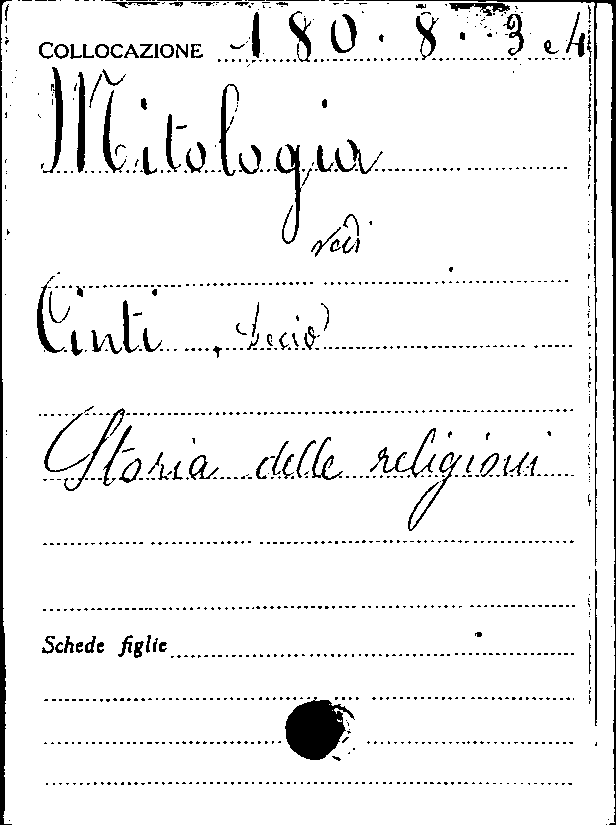 COLLOCAZIONE 180.8.3 e 4
Mitologia
vedi
Cinti, Decio
Storia delle religioni
Schede figlie